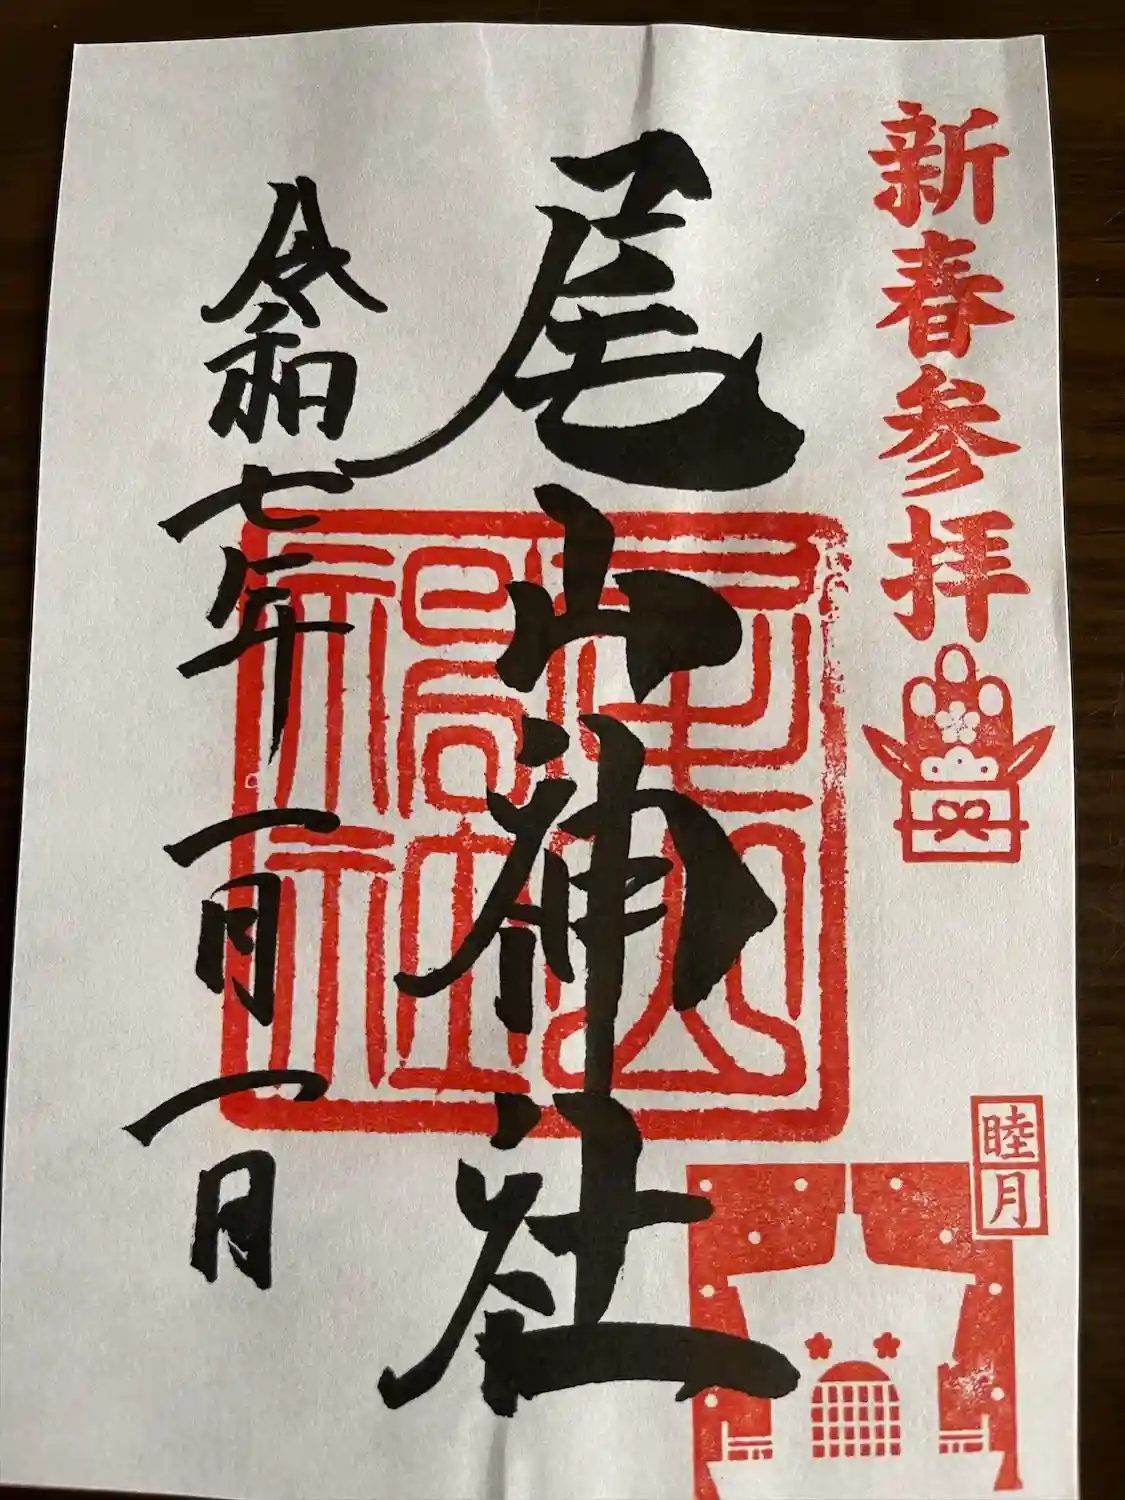 新春参拝
睦月
尾山神社
尾山神社
令和七年一月一日